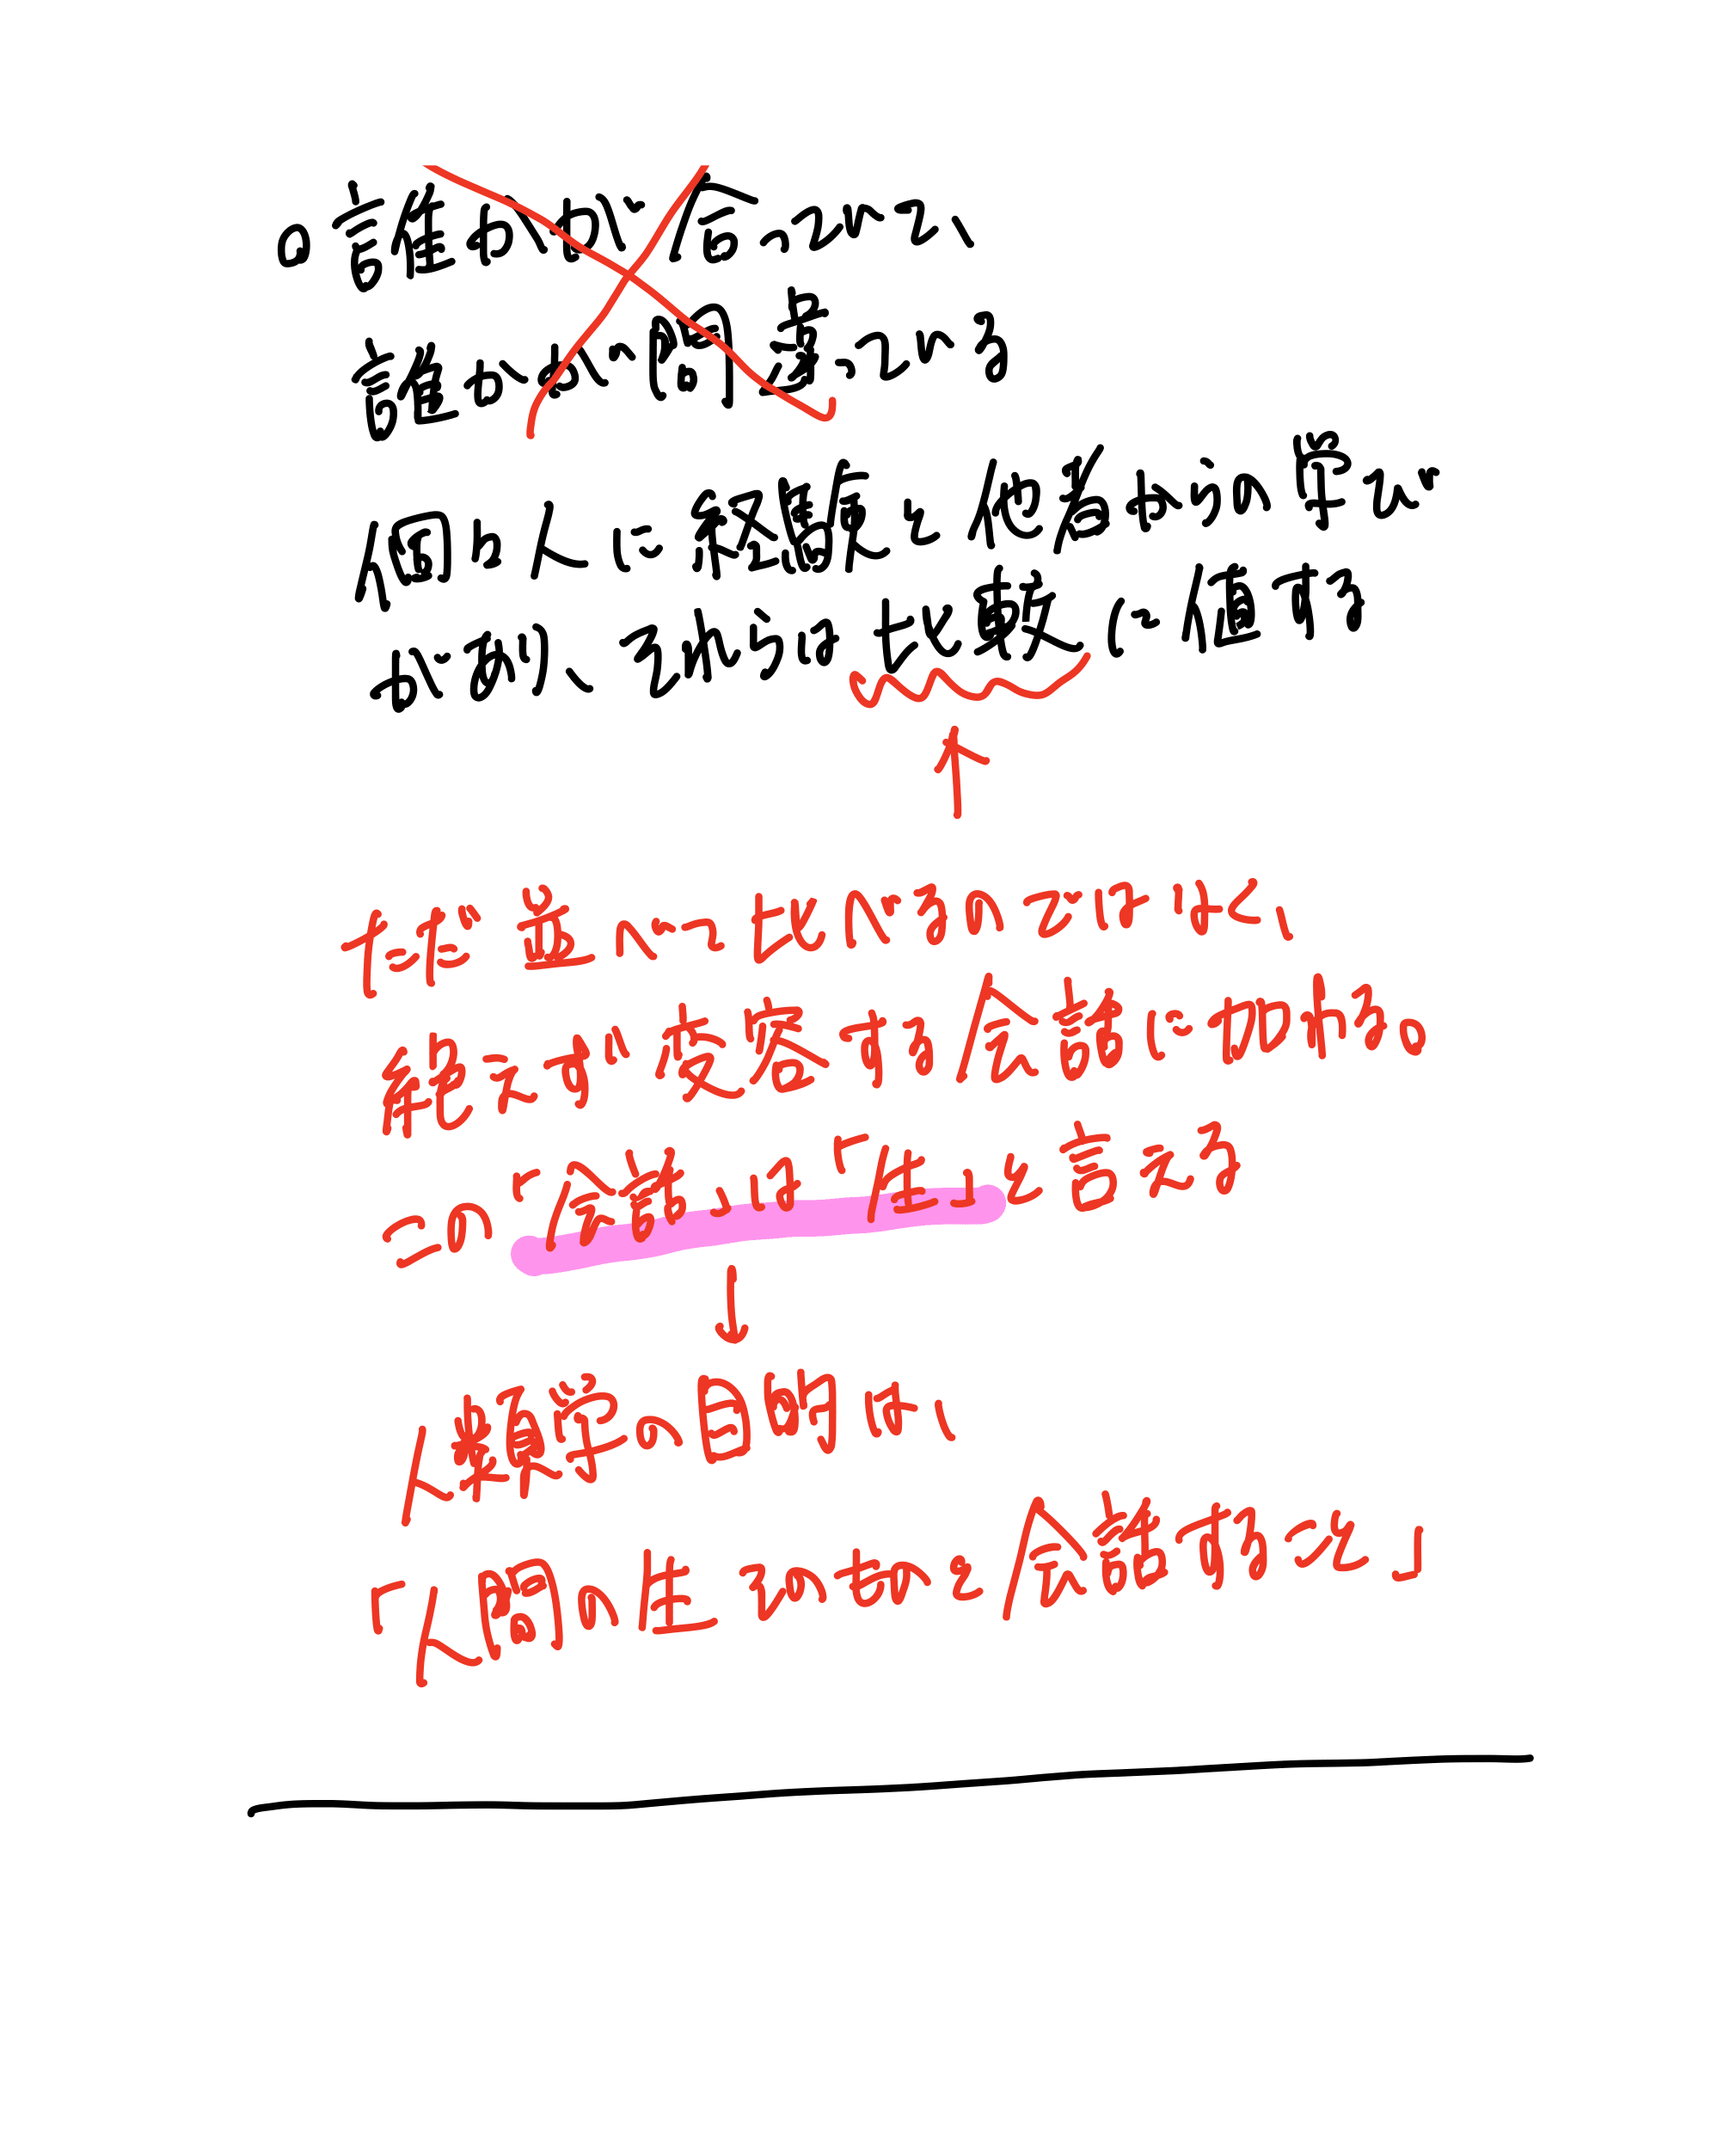 ○誰かが合っていて、
誰かが間違っている
個々人に経験と他者からの学びが
あり、それらは比較に値する
ただ並べて比べるのではなく、
絶えず変容する会話に加わる。
この「会話」は「生」と言える
↓
人類学の目的は、
「人間の生そのものと会話すること」